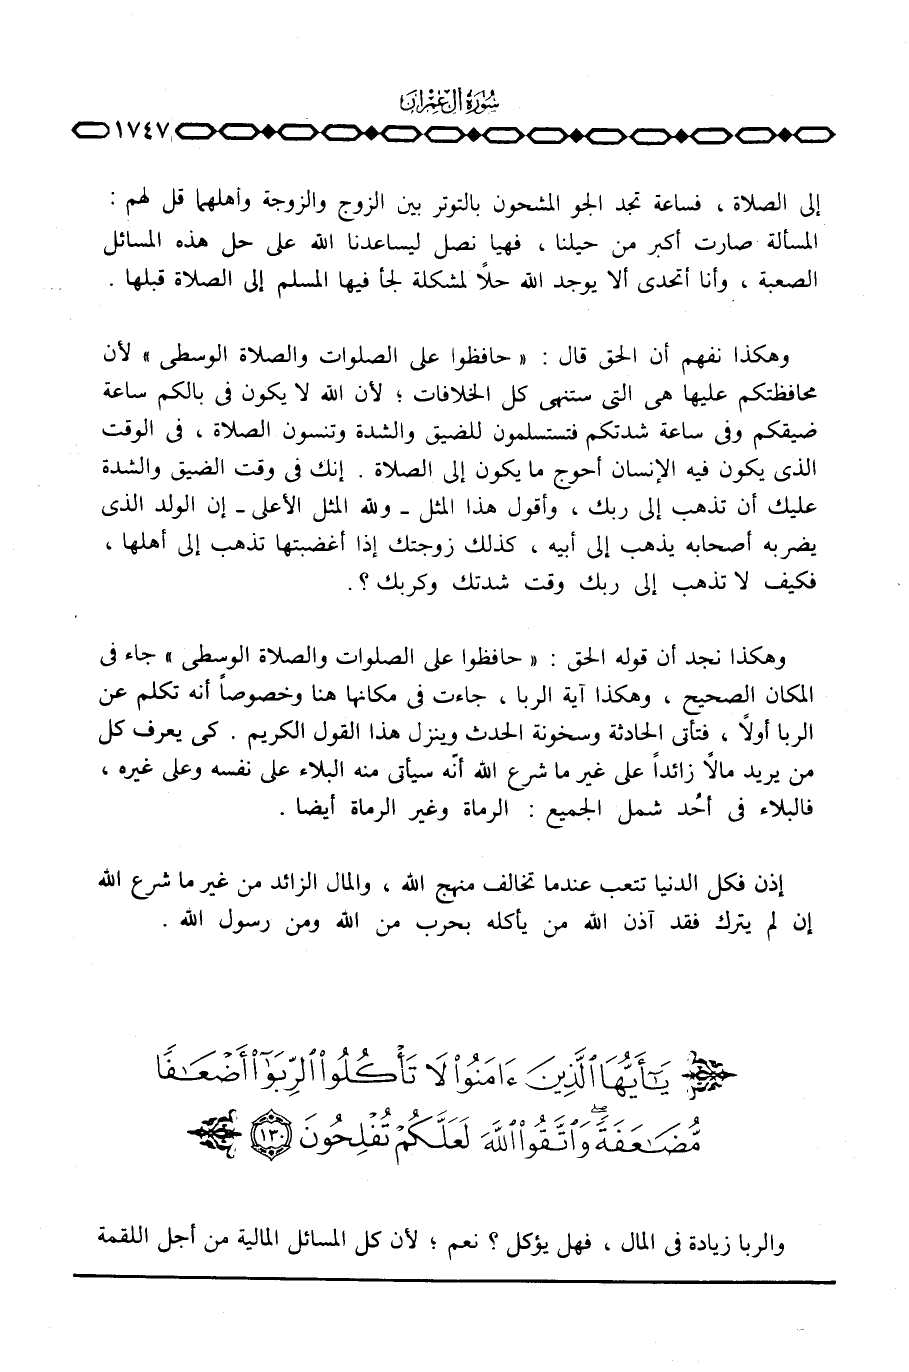 سُورَةُ آلِ عِمْرَانَ
١٧٤٧
إلى الصلاة ، فساعة تجد الجو المشحون بالتوتر بين الزوج والزوجة وأهلهما قل لهم :
المسألة صارت أكبر من حيلنا ، فهيا نصل ليساعدنا الله على حل هذه المسائل
الصعبة ، وأنا أتحدى ألا يوجد الله حلاً لمشكلة لجأ فيها المسلم إلى الصلاة قبلها .
وهكذا نفهم أن الحق قال : « حافظوا على الصلوات والصلاة الوسطى » لأن
محافظتكم عليها هى التى ستنهى كل الخلافات ؛ لأن الله لا يكون فى بالكم ساعة
ضيقكم وفى ساعة شدتكم فتستسلمون للضيق والشدة وتنسون الصلاة ، فى الوقت
الذى يكون فيه الإنسان أحوج ما يكون إلى الصلاة . إنك فى وقت الضيق والشدة
عليك أن تذهب إلى ربك ، وأقول هذا المثل ـ ولله المثل الأعلى ـ إن الولد الذى
يضربه أصحابه يذهب إلى أبيه ، كذلك زوجتك إذا أغضبتها تذهب إلى أهلها ،
فكيف لا تذهب إلى ربك وقت شدتك وكربك ؟ .
وهكذا نجد أن قوله الحق : « حافظوا على الصلوات والصلاة الوسطى » جاء فى
المكان الصحيح ، وهكذا آية الربا ، جاءت فى مكانها هنا وخصوصاً أنه تكلم عن
الربا أولاً ، فتأتى الحادثة وسخونة الحدث وينزل هذا القول الكريم . كى يعرف كل
من يريد مالاً زائداً على غير ما شرع الله أنّه سيأتى منه البلاء على نفسه وعلى غيره ،
فالبلاء فى أُحُد شمل الجميع : الرماة وغير الرماة أيضا .
إذن فكل الدنيا تتعب عندما تخالف منهج الله ، والمال الزائد من غير ما شرع الله
إن لم يترك فقد آذن الله من يأكله بحرب من الله ومن رسول الله .
يَـٰٓأَيُّهَا ٱلَّذِينَ ءَامَنُوا۟ لَا تَأْكُلُوا۟ ٱلرِّبَوٰٓا۟ أَضْعَـٰفًا
مُّضَـٰعَفَةً ۖ وَٱتَّقُوا۟ ٱللَّهَ لَعَلَّكُمْ تُفْلِحُونَ ١٣٠
والربا زيادة فى المال ، فهل يؤكل ؟ نعم ؛ لأن كل المسائل المالية من أجل اللقمة